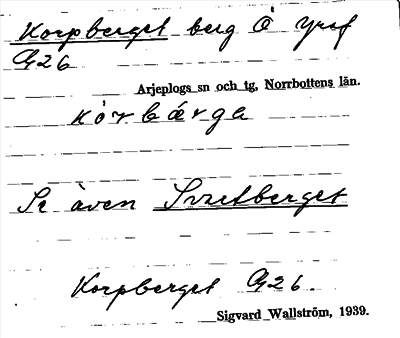 Korpberget berg Ö Yraf
G26
Arjeplogs sn och tg, Norrbottens län.
kórbærga
Se även Svartberget
Korpberget G26.
Sigvard Wallström, 1939.